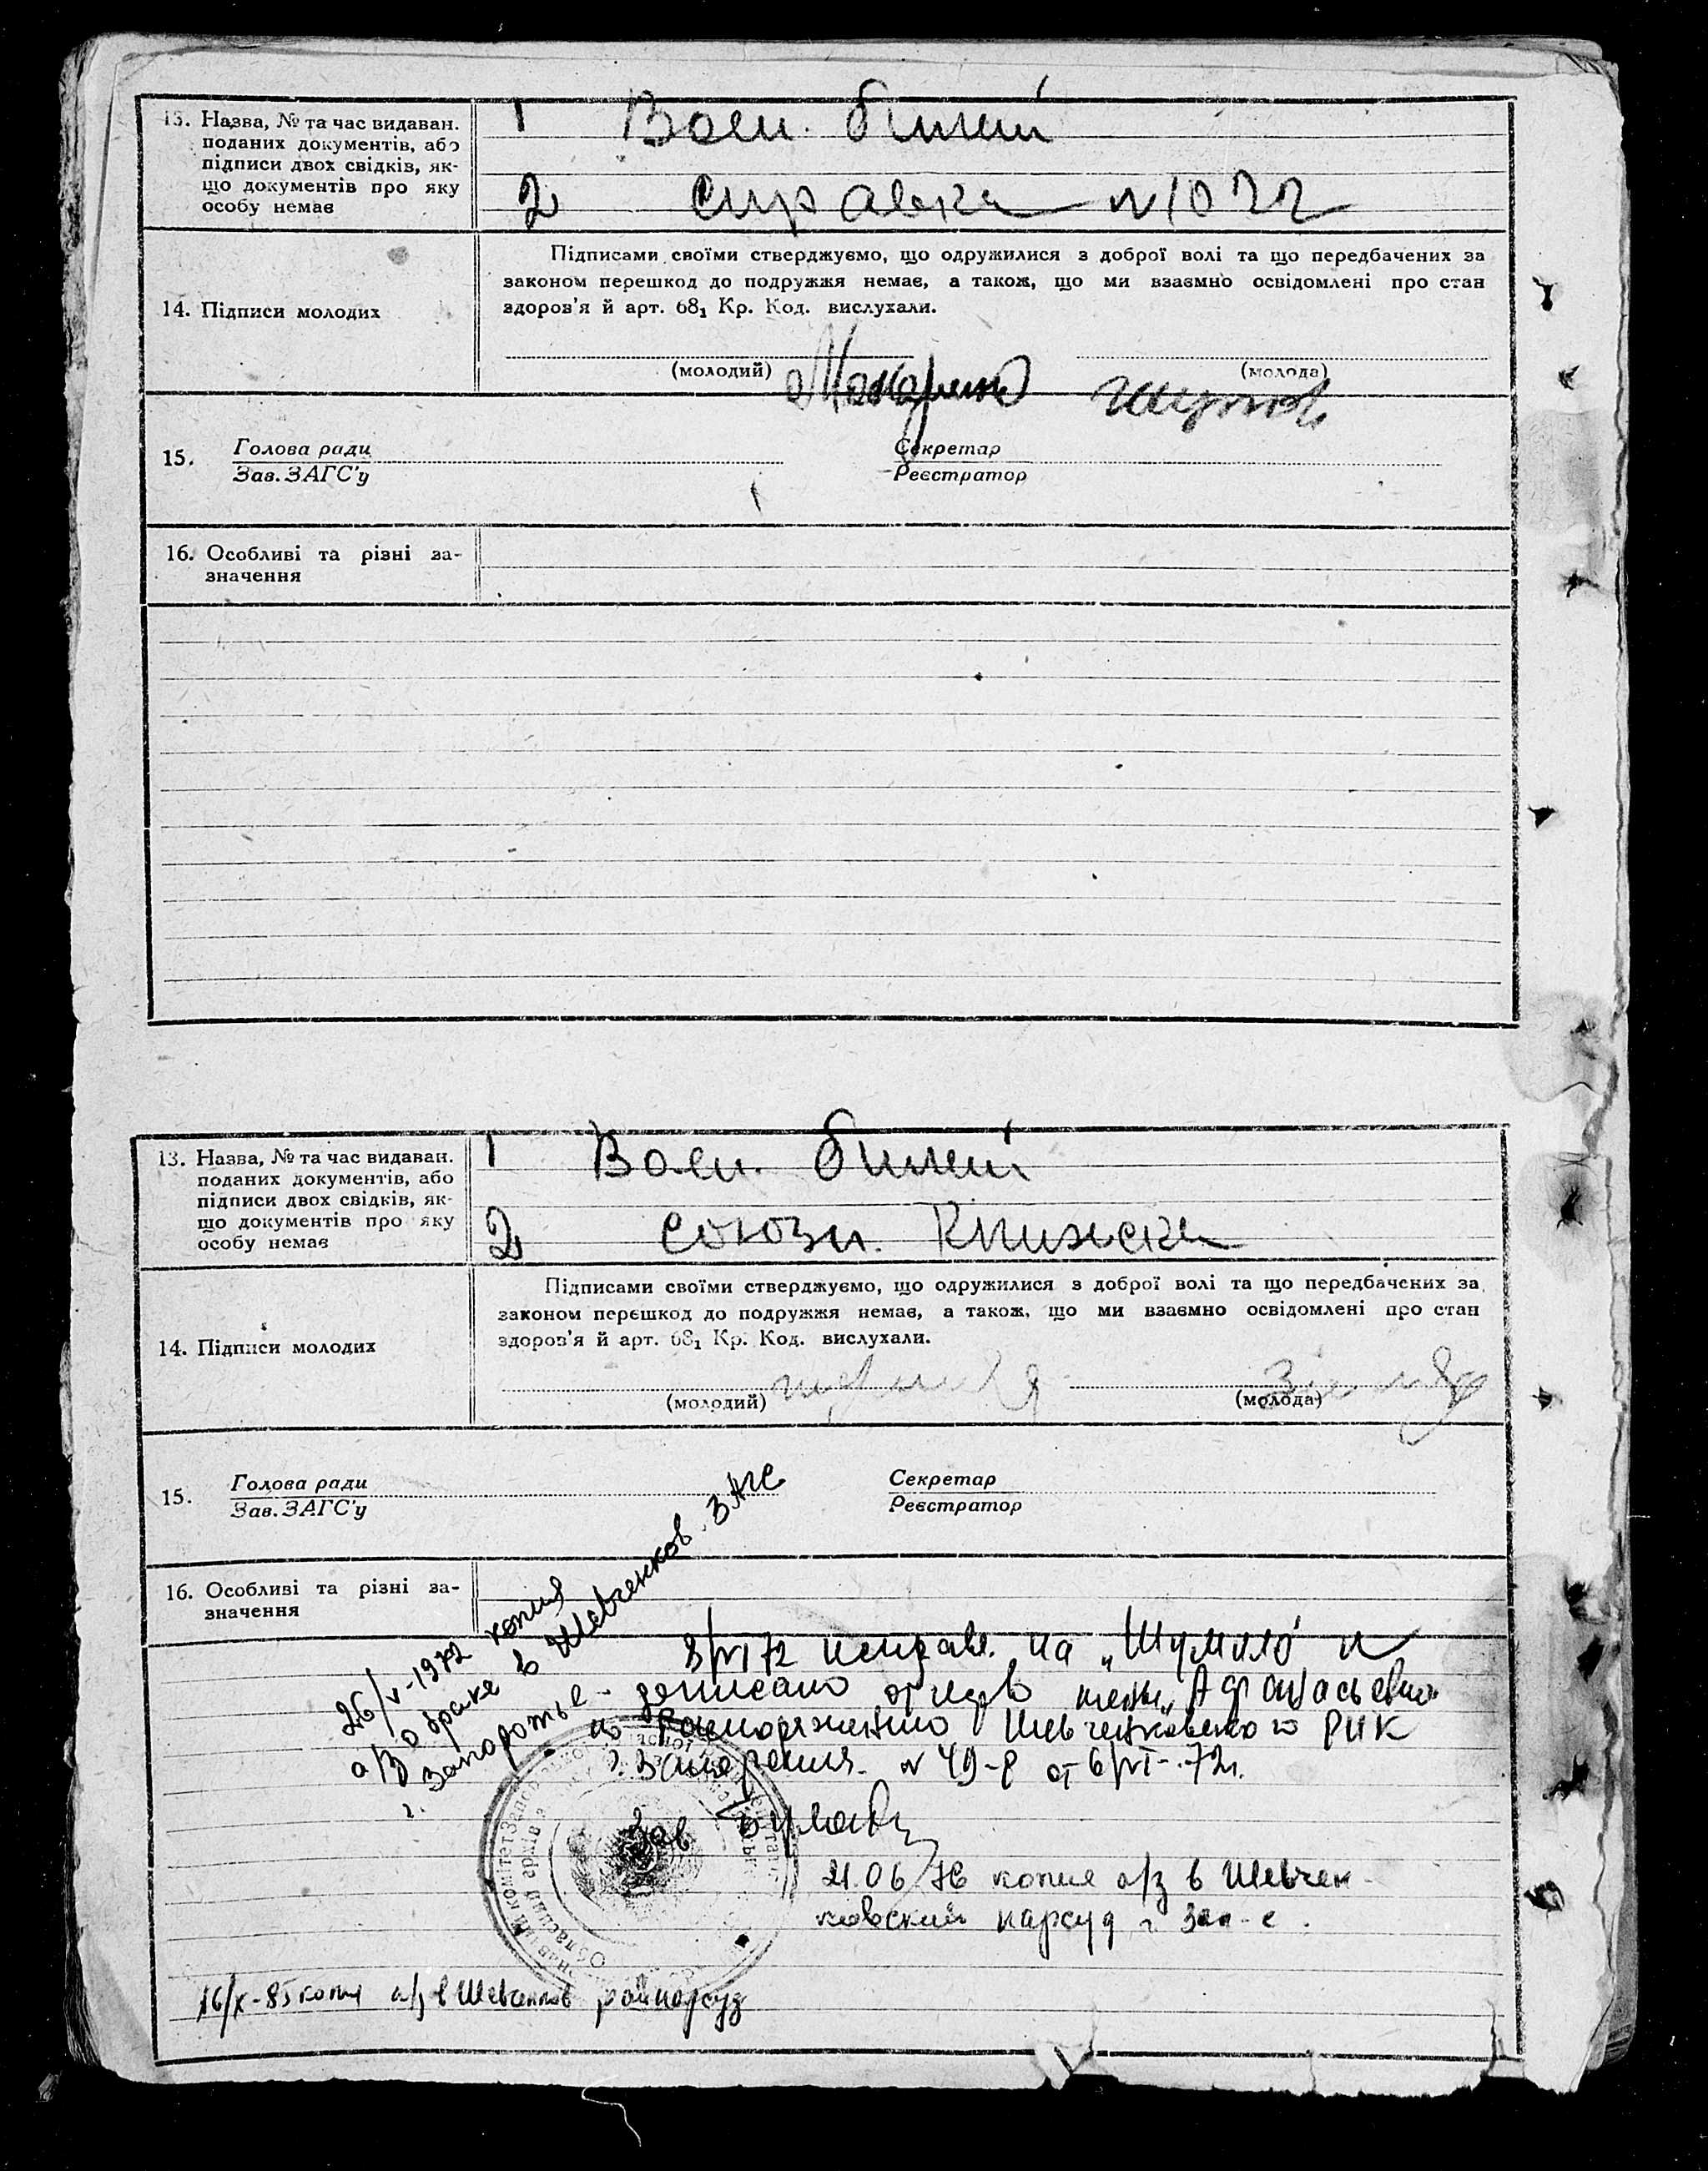 13. Назва, № та час видаван.
поданих документів, або
підписи двох свідків, як-
що документів про яку
особу немає
1 Воен. билет
2 справка № 1022
14. Підписи молодих
Підписами своїми стверджуємо, що одружилися з доброї волі та що передбачених за
законом перешкод до подружжя немає, а також, що ми взаємно освідомлені про стан
здоров'я й арт. 68₁ Кр. Код. вислухали.
(молодий) (молода)
15. Голова ради
Зав. ЗАГС'у
Секретар
Реєстратор
16. Особливі та різні за-
значення
13. Назва, № та час видаван.
поданих документів, або
підписи двох свідків, як-
що документів про яку
особу немає
1 Воен. билет
2 союзн. книжка
14. Підписи молодих
Підписами своїми стверджуємо, що одружилися з доброї волі та що передбачених за
законом перешкод до подружжя немає, а також, що ми взаємно освідомлені про стан
здоров'я й арт. 68₁ Кр. Код. вислухали.
(молодий) (молода)
15. Голова ради
Зав. ЗАГС'у
Секретар
Реєстратор
16. Особливі та різні за-
значення
26/V-1972 копия
а/з о браке в Шевченков. ЗАГС
г. Запорожье
8/VI 72 исправ. на „Шумило" и
дописано отчество жены „Афанасьевна"
по распоряжению Шевченковского РИК
г. Запорожья № 49-р от 6/VI-72г.
Зав
21.06 76 копия а/з в Шевчен-
ковский нарсуд г Зап-е.
16/X-85 копия а/з в Шевченков райнарсуд